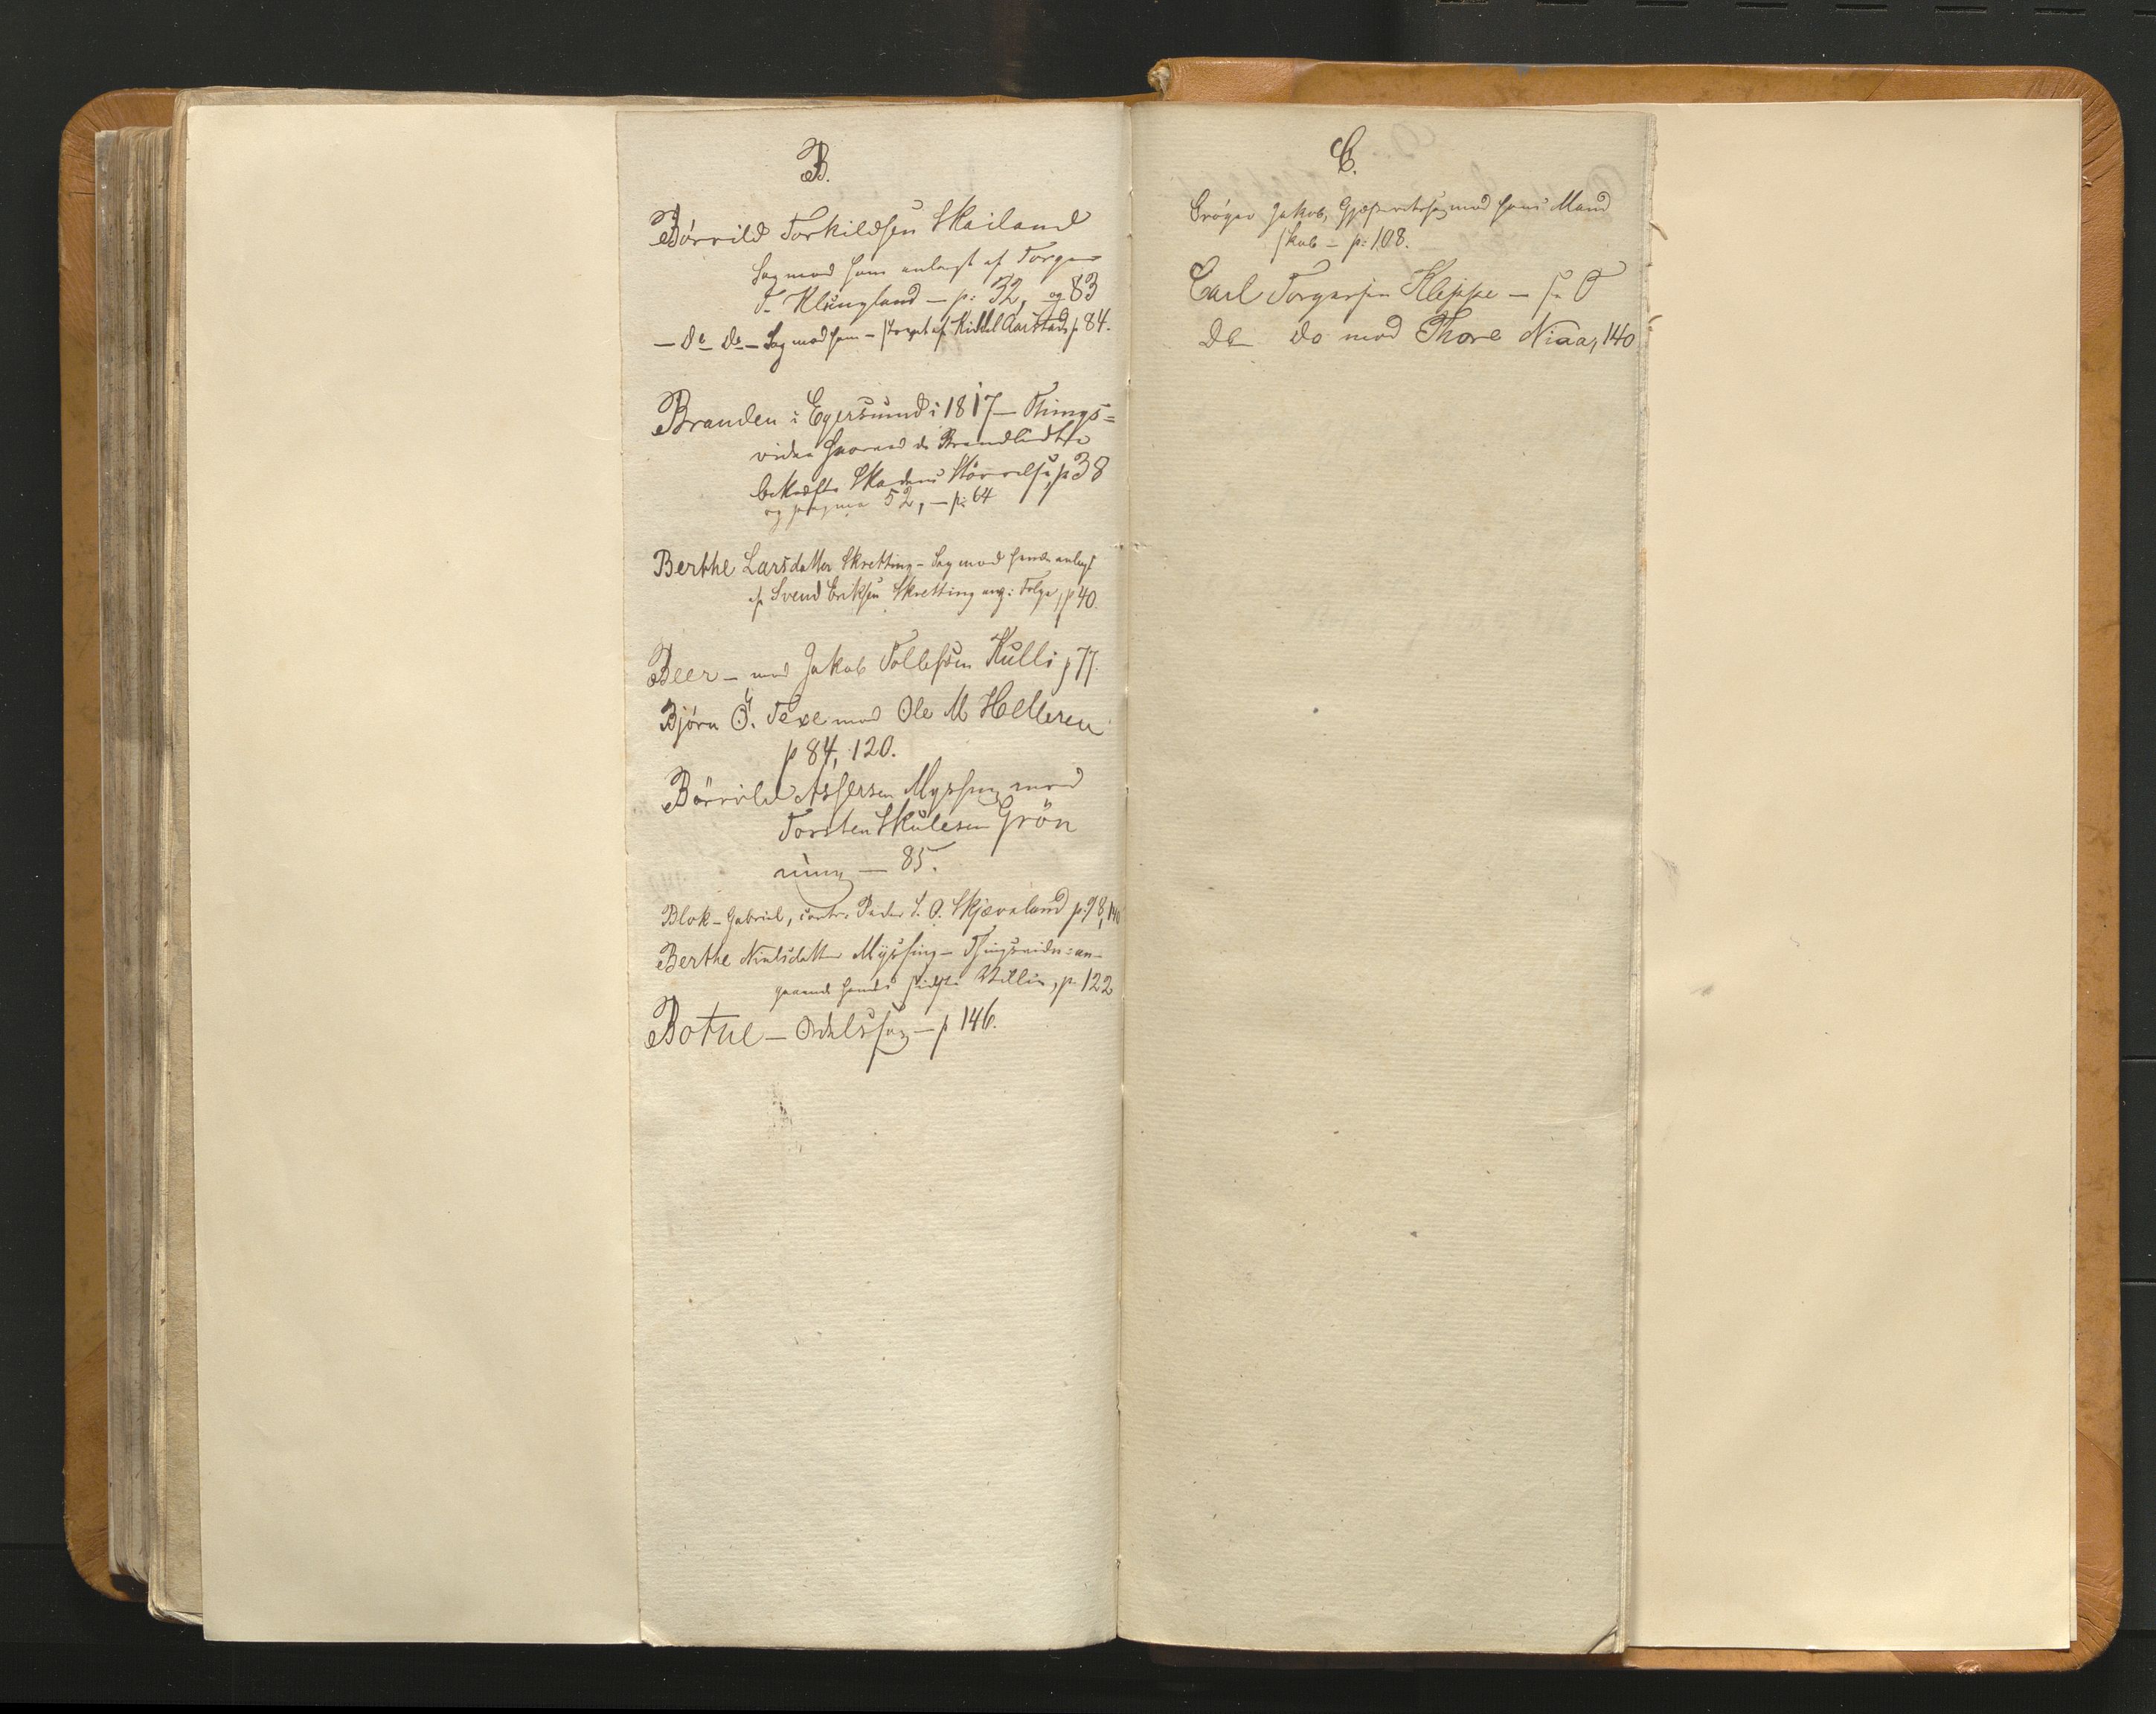 B.
Börrild Torkildsen Skailand
Sag mod ham anlagt af Torger
T. Klungland — p: 32, og 83
— do do — Sag mod ham — af Kittel Aarstad p 84.
Branden i Egersund i 1817 — Things=
vidne hvorved de Brandlidte
bekræfte Skadens Störrelse, p 38
og pagina 52, — p: 64
Berthe Larsdatter Skretting — Sag mod hende anlagt
af Svend Eriksen Skretting ang: Folge, p 40.
Beer — mod Jakob Tollefsen Hulli p 77.
Björn Ö. Texe mod Ole M Helleren
p 84, 120.
Börrild Assersen Myssing mod
Torsten Skulesen Grön
ning — 85.
Blok — Gabriel, contra Peder S. O. Skjæveland p. 98, 140
Berthe Nielsdatter Myssing — Thingsvidne an-
gaaende hendes sidste Villie, p. 122
Bothe — Odelssag — p 146.
C.
Cröger Jakob, Gjæsteretssag mod hans Mand
skab — p: 108.
Carl Torgersen Kleppe — se T
Do do mod Thore Niaa, 140